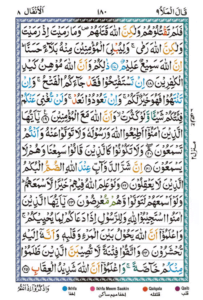 قَالَ الْمَلَاُ ٩ ١٨٠ الْاَنْفَال ٨
فَلَمْ تَقْتُلُوْهُمْ وَلٰكِنَّ اللّٰهَ قَتَلَهُمْ وَمَا رَمَيْتَ اِذْ رَمَيْتَ
وَلٰكِنَّ اللّٰهَ رَمٰى ۚ وَلِيُبْلِيَ الْمُؤْمِنِيْنَ مِنْهُ بَلَآءً حَسَنًا ؕ
اِنَّ اللّٰهَ سَمِيْعٌ عَلِيْمٌ ۝ ذٰلِكُمْ وَاَنَّ اللّٰهَ مُوْهِنُ كَيْدِ
الْكٰفِرِيْنَ ۝ اِنْ تَسْتَفْتِحُوْا فَقَدْ جَآءَكُمُ الْفَتْحُ ۚ وَاِنْ
تَنْتَهُوْا فَهُوَ خَيْرٌ لَّكُمْ ۚ وَاِنْ تَعُوْدُوْا نَعُدْ ۚ وَلَنْ تُغْنِيَ عَنْكُمْ
فِئَتُكُمْ شَيْئًا وَّلَوْ كَثُرَتْ ۙ وَاَنَّ اللّٰهَ مَعَ الْمُؤْمِنِيْنَ ۝ يٰۤاَيُّهَا
الَّذِيْنَ اٰمَنُوْۤا اَطِيْعُوا اللّٰهَ وَرَسُوْلَهٗ وَلَا تَوَلَّوْا عَنْهُ وَاَنْتُمْ
تَسْمَعُوْنَ ۝ وَلَا تَكُوْنُوْا كَالَّذِيْنَ قَالُوْا سَمِعْنَا وَهُمْ لَا
يَسْمَعُوْنَ ۝ اِنَّ شَرَّ الدَّوَآبِّ عِنْدَ اللّٰهِ الصُّمُّ الْبُكْمُ
الَّذِيْنَ لَا يَعْقِلُوْنَ ۝ وَلَوْ عَلِمَ اللّٰهُ فِيْهِمْ خَيْرًا لَّاَسْمَعَهُمْ ؕ
وَلَوْ اَسْمَعَهُمْ لَتَوَلَّوْا وَّهُمْ مُّعْرِضُوْنَ ۝ يٰۤاَيُّهَا الَّذِيْنَ
اٰمَنُوا اسْتَجِيْبُوْا لِلّٰهِ وَلِلرَّسُوْلِ اِذَا دَعَاكُمْ لِمَا يُحْيِيْكُمْ ۚ
وَاعْلَمُوْۤا اَنَّ اللّٰهَ يَحُوْلُ بَيْنَ الْمَرْءِ وَقَلْبِهٖ وَاَنَّهٗۤ اِلَيْهِ
تُحْشَرُوْنَ ۝ وَاتَّقُوْا فِتْنَةً لَّا تُصِيْبَنَّ الَّذِيْنَ ظَلَمُوْا
مِنْكُمْ خَآصَّةً ۚ وَاعْلَمُوْۤا اَنَّ اللّٰهَ شَدِيْدُ الْعِقَابِ ۝